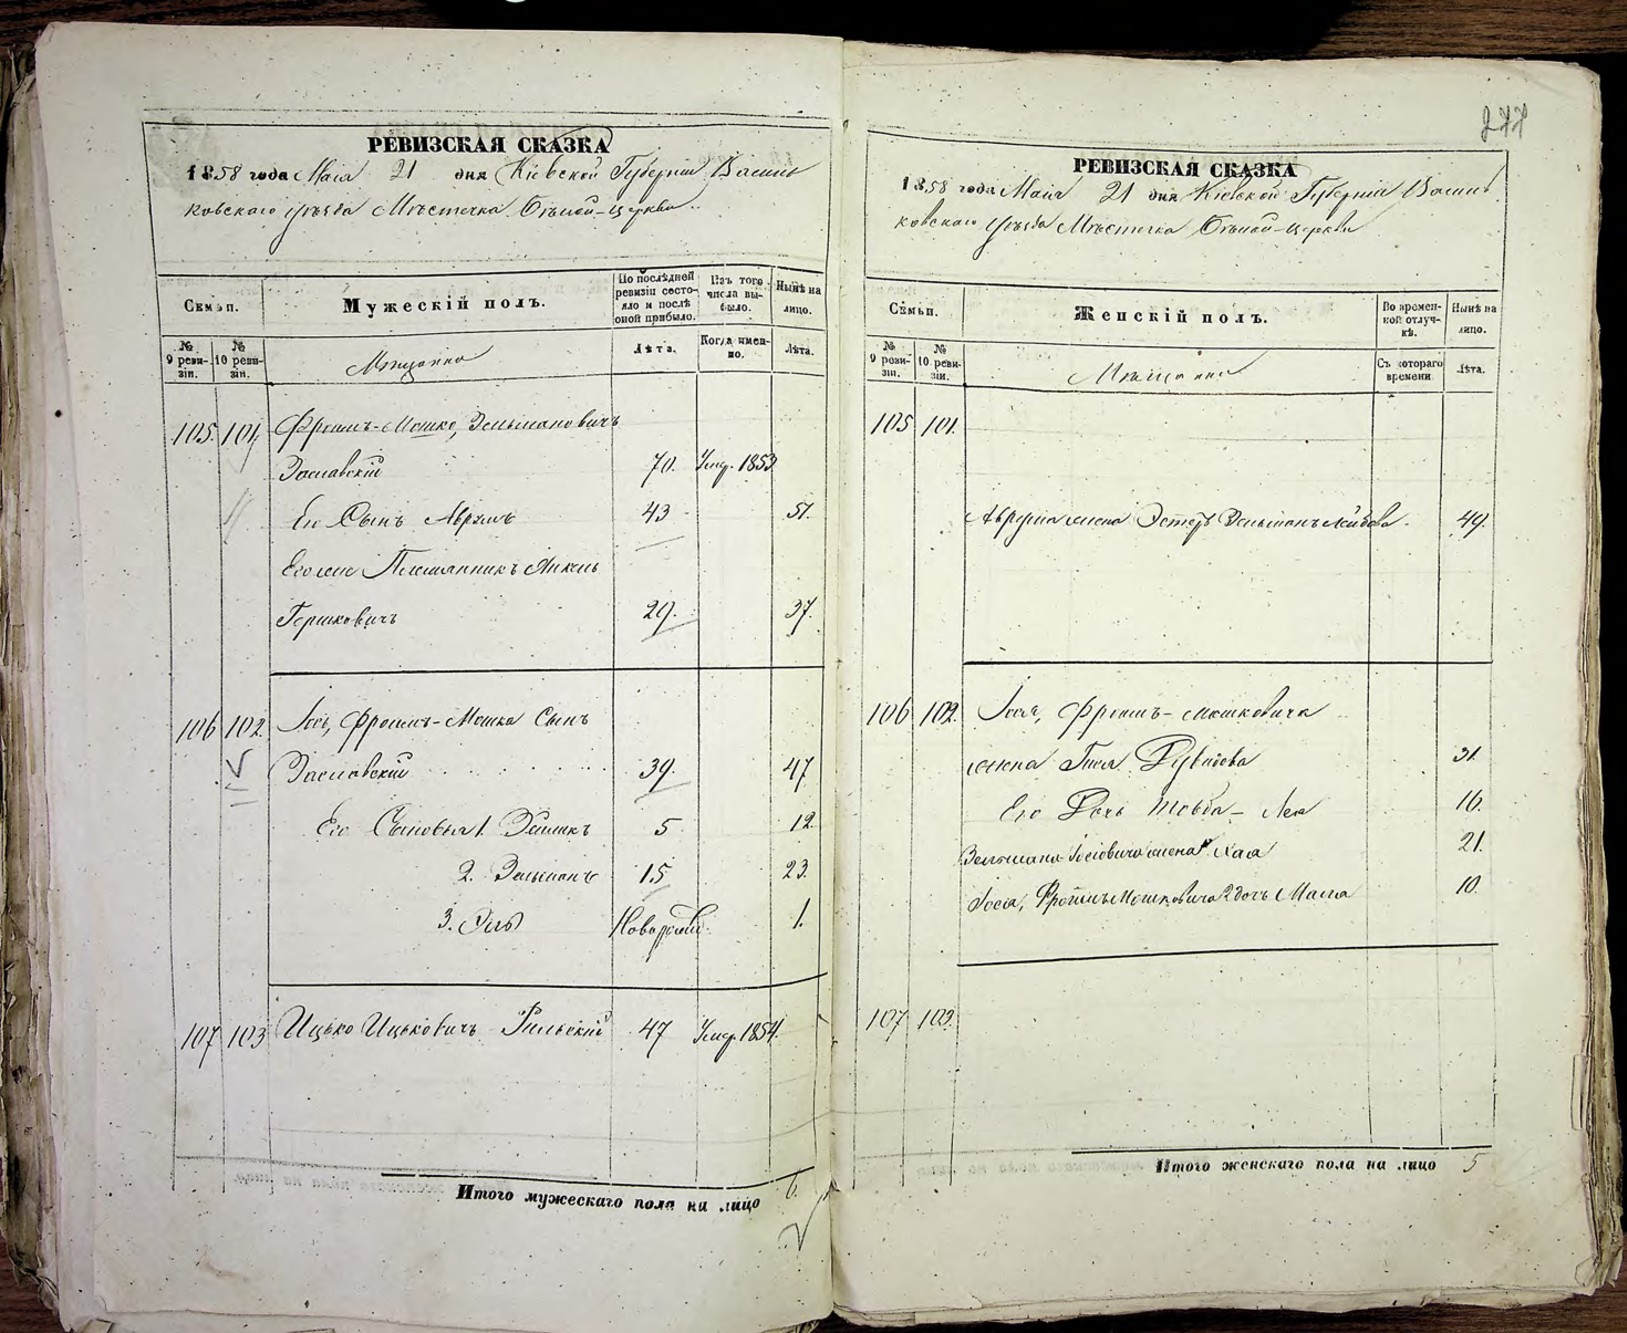 277
РЕВИЗСКАЯ СКАЗКА
1858 года Маія 21 дня Кіевской Губерніи Василь
ковскаго уѣзда Мѣстечка Бѣлой-Церкви.
Семьи.
Мужескій полъ.
По послѣдней ревизіи состояло и послѣ оной прибыло.
Изъ того числа выбыло.
Нынѣ на лицо.
№ 9 ревизіи.
№ 10 ревизіи.
Мѣщанѣ
Лѣта.
Когда именно.
Лѣта.
105. 101. Фроимъ-Мошко, Зельмановичъ
Заславскій 70. Умер. 1853
Его Сынъ Аврумъ 43 51.
Его же Племянникъ Янкель
Гершковичъ 29. 37.
106 102. Іось, Фроимъ-Мошка Сынъ
Заславскій 39. 47
Его Сыновья 1. 5 12.
2. Зельманъ 15 23.
3. Новорожд. 1.
107 103 Ицько Ицьковичъ Рильскій 47 Умер. 1854.
Итого мужескаго пола на лицо 6.
РЕВИЗСКАЯ СКАЗКА
1858 года Маія 21 дня Кіевской Губерніи Василь
ковскаго уѣзда Мѣстечка Бѣлой-Церкви
Семьи.
Женскій полъ.
Во временной отлучкѣ.
Нынѣ на лицо.
№ 9 ревизіи.
№ 10 ревизіи.
Съ котораго времени
Лѣта.
105 101.
Аврума жена Эстеръ Зельманъ Лейбова. 49.
106 102. Іося, Фроимъ-Мошковича
жена Рувинова 31.
Его Дочь Товба-Лея 16.
Зельмана Іосіовича жена Хая 21.
Іося, Фроимъ Мошковича 2 дочь Малка 10.
107 103.
Итого женскаго пола на лицо 5